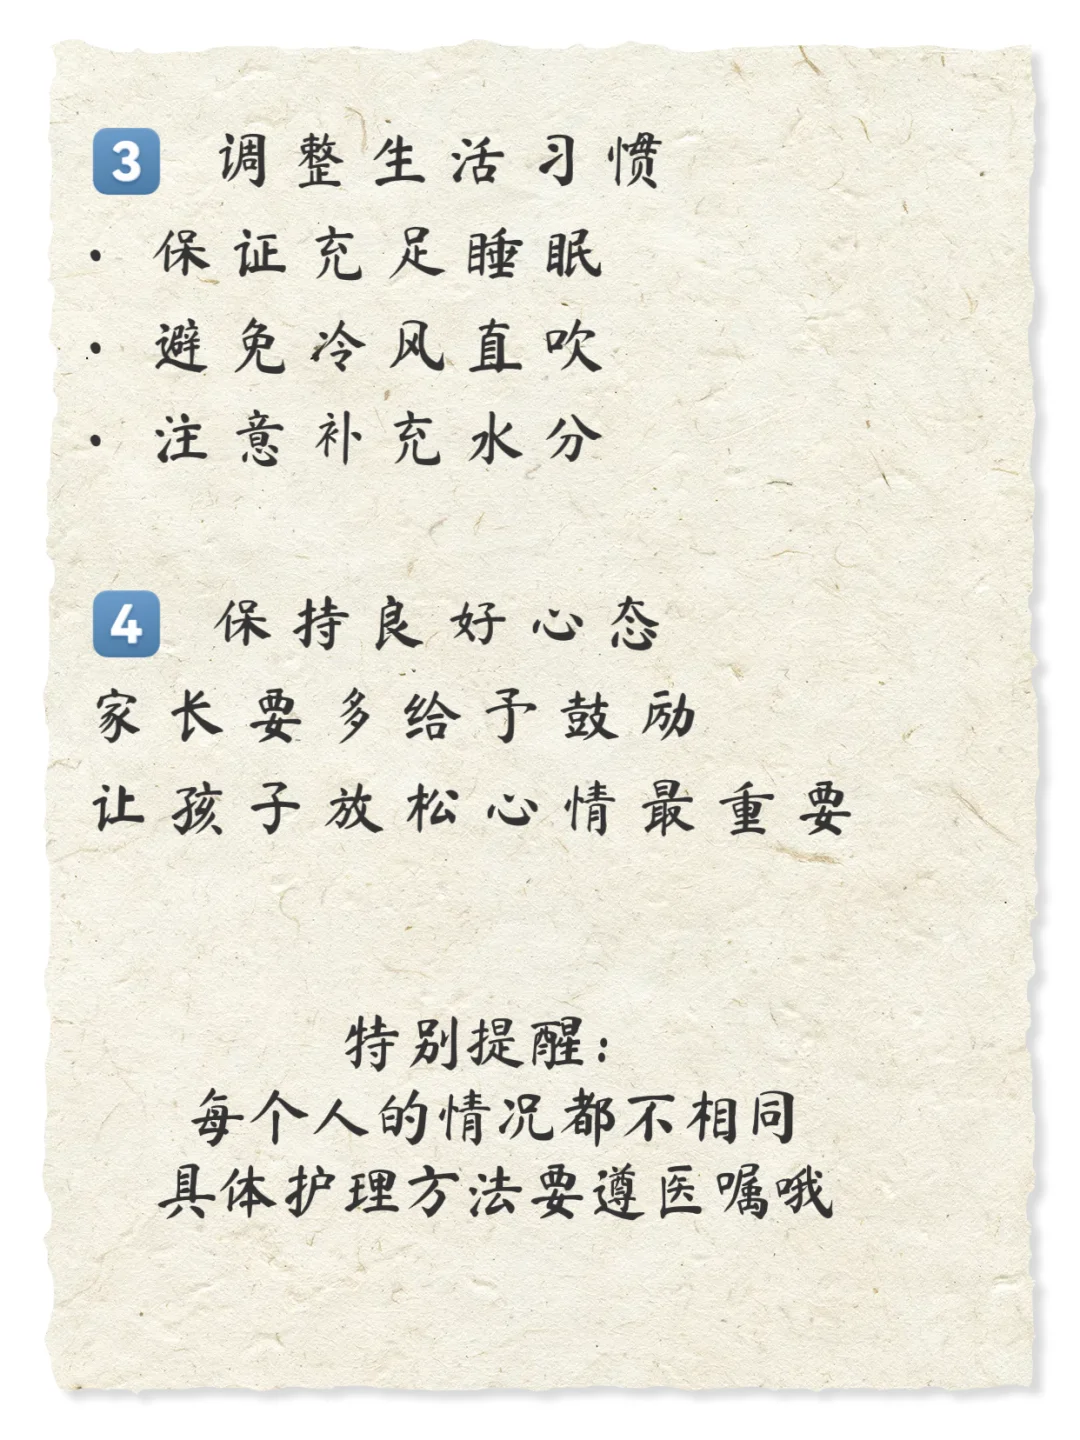 3 调整生活习惯
· 保证充足睡眠
· 避免冷风直吹
· 注意补充水分
4 保持良好心态
家长要多给予鼓励
让孩子放松心情最重要
特别提醒：
每个人的情况都不相同
具体护理方法要遵医嘱哦